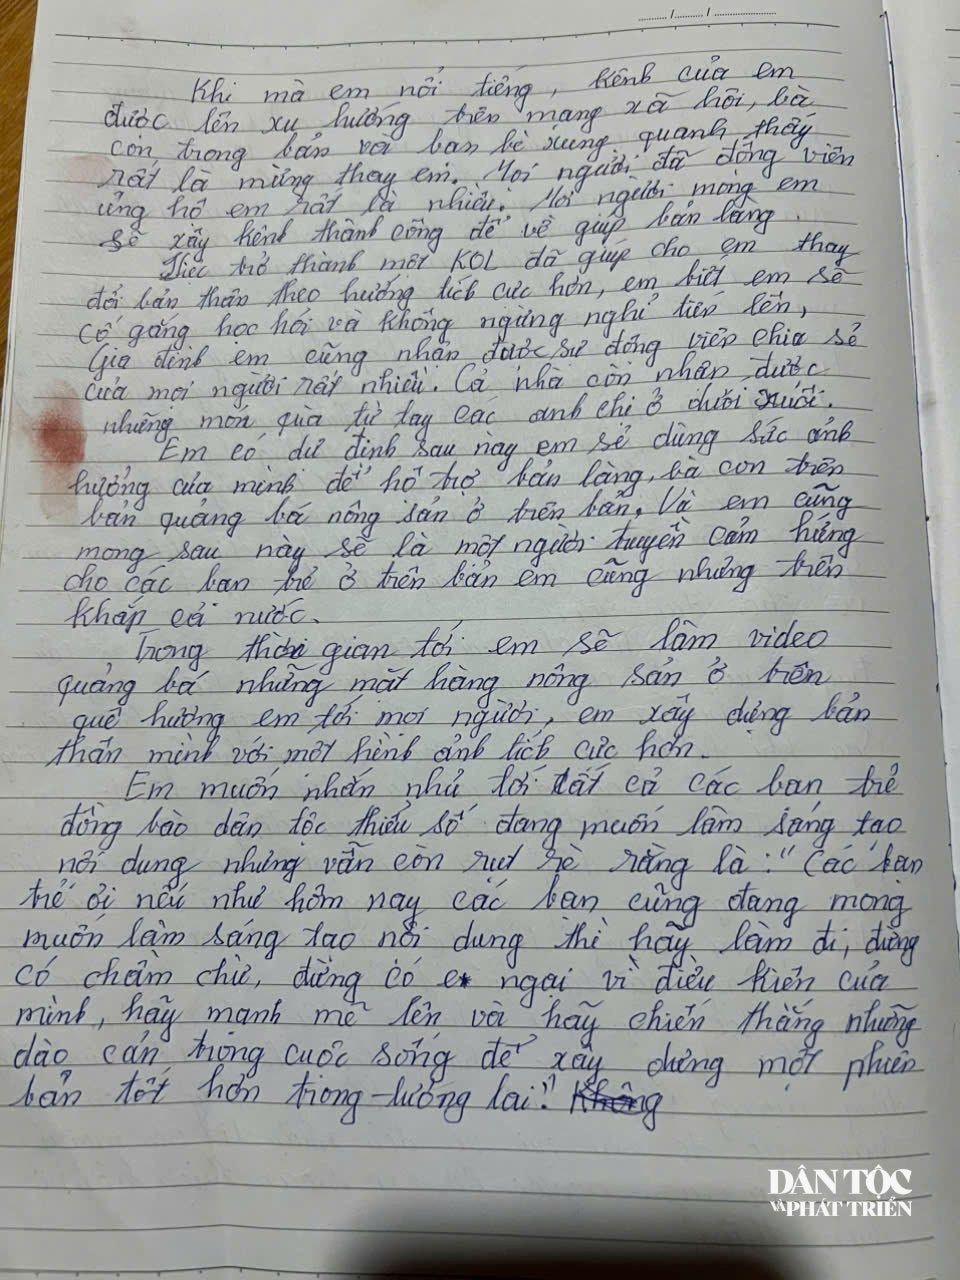 ....../....../............
Khi mà em nổi tiếng, kênh của em
được lên xu hướng trên mạng xã hội, bà
con trong bản với bạn bè xung quanh thấy
rất là mừng thay em. Mọi người đã động viên
ủng hộ em rất là nhiều. Mọi người mong em
sẽ xây kênh thành công để về giúp bản làng.
Việc trở thành một KOL đã giúp cho em thay
đổi bản thân theo hướng tích cực hơn, em biết em sẽ
cố gắng học hỏi và không ngừng nghỉ tiến lên,
Gia đình em cũng nhận được sự động viên chia sẻ
của mọi người rất nhiều. Cả nhà còn nhận được
những món quà từ tay các anh chị ở dưới xuôi.
Em có dự định sau nay em sẻ dùng sức ảnh
hưởng của mình để hổ trợ bản làng, bà con trên
bản quảng bá nông sản ở trên bản. Và em cũng
mong sau này sẽ là một người truyền cảm hứng
cho các bạn trẻ ở trên bản em cũng nhưng trên
khắp cả nước.
Trong thời gian tới em sẽ làm video
quảng bá những mặt hàng nông sản ở trên
quê hương em tới mọi người, em xây dựng bản
thân mình với một hình ảnh tích cực hơn.
Em muốn nhắn nhủ tới tất cả các bạn trẻ
đồng bào dân tộc thiểu số đang muốn làm sáng tạo
nội dung nhưng vẫn còn rụt rè rằng là: "Các bạn
trẻ ơi nếu như hôm nay các bạn cũng đang mong
muốn làm sáng tạo nội dung thì hãy làm đi, đừng
có chầm chừ, đừng có e ngại vì điều kiện của
mình, hãy mạnh mẽ lên và hãy chiến thắng những
dào cản trong cuộc sống để xây dựng một phiên
bản tốt hơn trong tương lai". Không
DÂN TỘC
VÀ PHÁT TRIỂN